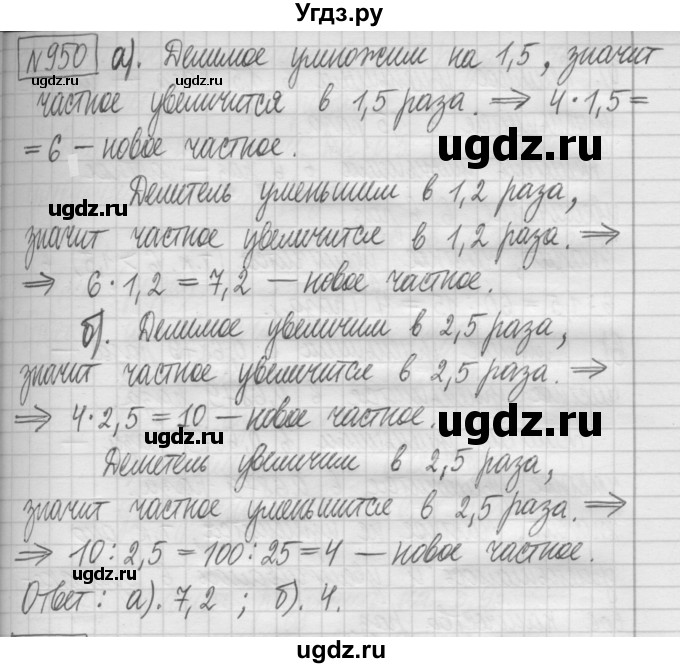 Угдз.ру
№950 а). Делимое умножим на 1,5, значит
частное увеличится в 1,5 раза. ⇒ 4·1,5=
ugdz.ru
= 6 – новое частное.
ugdz.ru
Делитель уменьшим в 1,2 раза,
ugdz.ru
значит частное увеличится в 1,2 раза. ⇒
ugdz.ru
⇒ 6·1,2 = 7,2 – новое частное.
б). Делимое увеличим в 2,5 раза,
ugdz.ru
значит частное увеличится в 2,5 раза. ⇒
⇒ 4·2,5 = 10 – новое частное.
ugdz.ru
ugdz.ru
Делитель увеличим в 2,5 раза,
значит частное уменьшится в 2,5 раза. ⇒
ugdz.ru
⇒ 10:2,5 = 100:25 = 4 – новое частное.
ugdz.ru
Ответ: а). 7,2 ; б). 4.
ugdz.ru